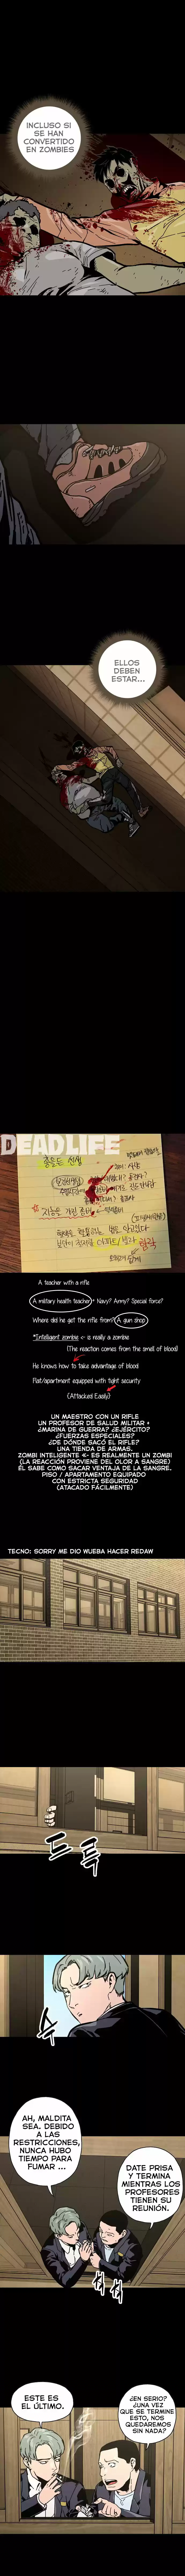 INCLUSO SI
SE HAN
CONVERTIDO
EN ZOMBIES
ELLOS
DEBEN
ESTAR...
DEADLIFE
A teacher with a rifle
A military health teacher + Navy? Army? Special force?
Where did he get the rifle from? A gun shop
*Intelligent zombie <- is really a zombie
(The reaction comes from the smell of blood)
He knows how to take advantage of blood
Flat/apartment equipped with tight security
(Attacked Easily)
UN MAESTRO CON UN RIFLE
UN PROFESOR DE SALUD MILITAR +
¿MARINA DE GUERRA? ¿EJÉRCITO?
¿FUERZAS ESPECIALES?
¿DE DÓNDE SACÓ EL RIFLE?
UNA TIENDA DE ARMAS.
ZOMBI INTELIGENTE <- ES REALMENTE UN ZOMBI
(LA REACCIÓN PROVIENE DEL OLOR A SANGRE)
ÉL SABE COMO SACAR VENTAJA DE LA SANGRE.
PISO / APARTAMENTO EQUIPADO
CON ESTRICTA SEGURIDAD
(ATACADO FÁCILMENTE)
TECNO: SORRY ME DIO WUEBA HACER REDAW
드
륵
AH, MALDITA
SEA. DEBIDO
A LAS
RESTRICCIONES,
NUNCA HUBO
TIEMPO PARA
FUMAR ...
DATE PRISA
Y TERMINA
MIENTRAS LOS
PROFESORES
TIENEN SU
REUNIÓN.
ESTE ES
EL ÚLTIMO.
¿EN SERIO?
¿UNA VEZ
QUE SE TERMINE
ESTO, NOS
QUEDAREMOS
SIN NADA?